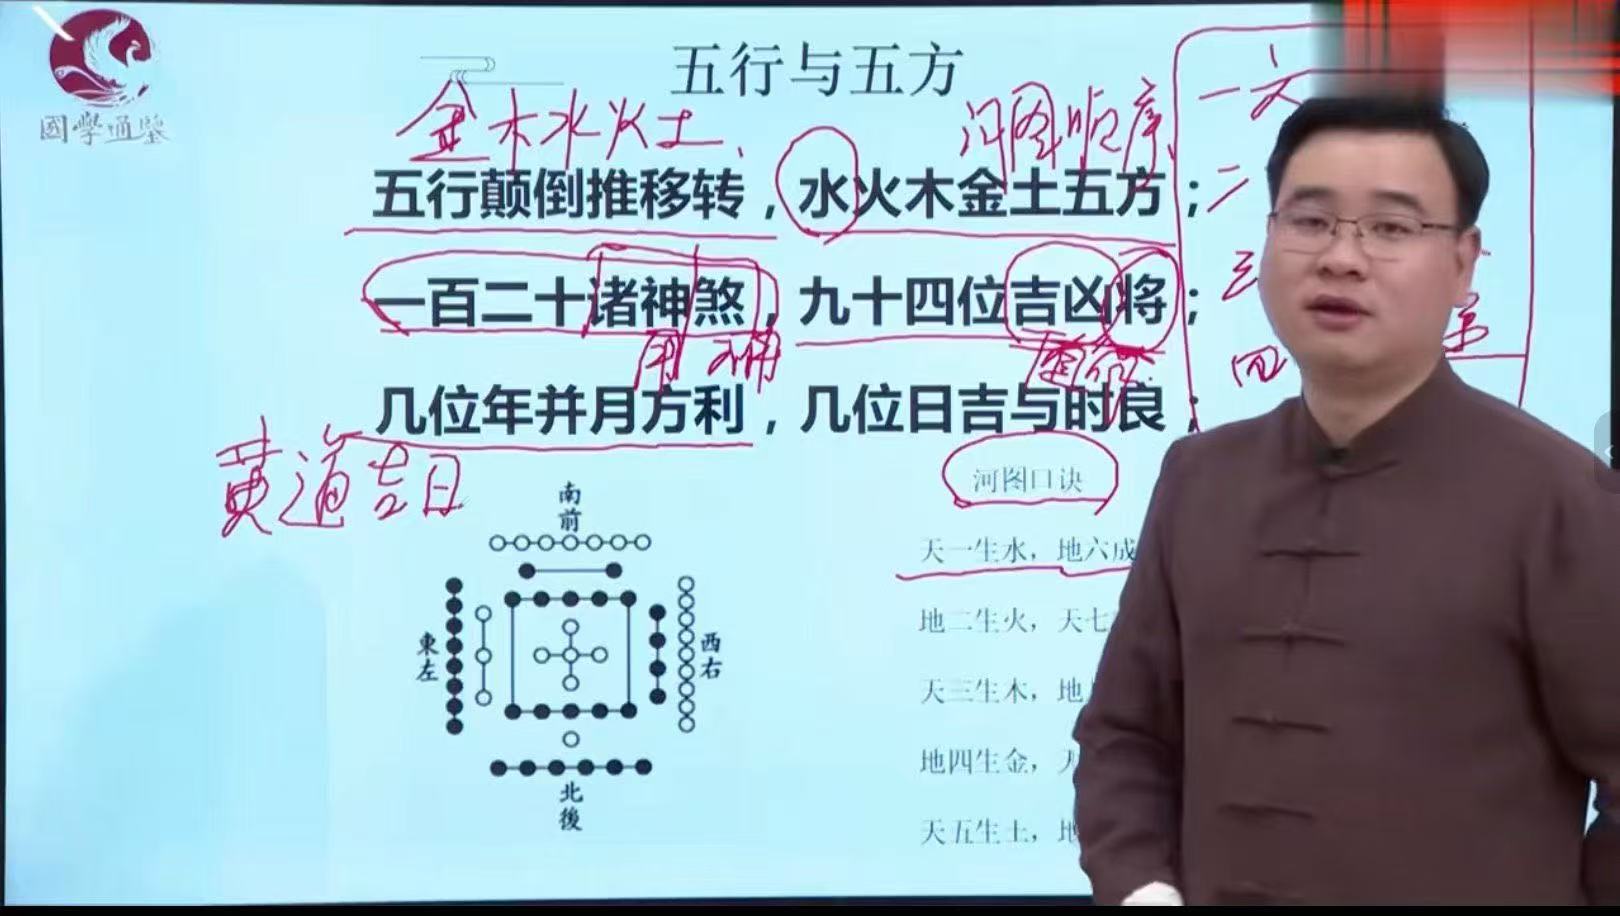 國學通鑒
五行与五方
金木水火土、
河图顺序
一六
五行颠倒推移转，水火木金土五方；
二
一百二十诸神煞，九十四位吉凶将；
三
用 不用
四
几位年并月方利，几位日吉与时良；
黄道吉日
河图口诀
南
前
天一生水，地六成
地二生火，天七
東
左
西
右
天三生木，地
地四生金，天
北
後
天五生土，地